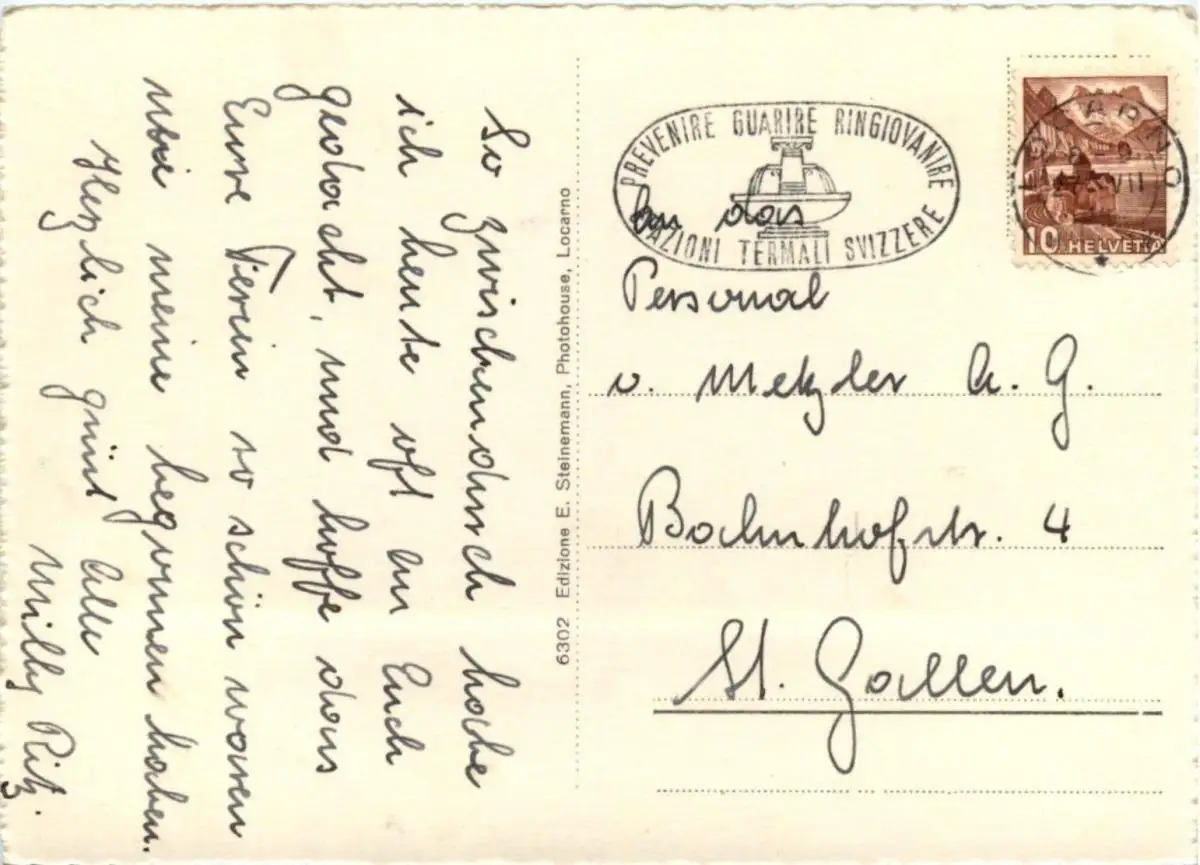 So zwischendurch habe
ich heute oft an Euch
gedacht, und hoffe dass
Eure Ferien so schön waren
wie meine begonnen haben.
Herzlich grüsst alle
Milly Ritz.
6302 Edizione E. Steinemann, Photohouse, Locarno
PREVENIRE GUARIRE RINGIOVANIRE
STAZIONI TERMALI SVIZZERE
LOCARNO
VII
10 HELVETIA
An das
Personal
v. Metzler A. G.
Bahnhofstr. 4
St. Gallen.